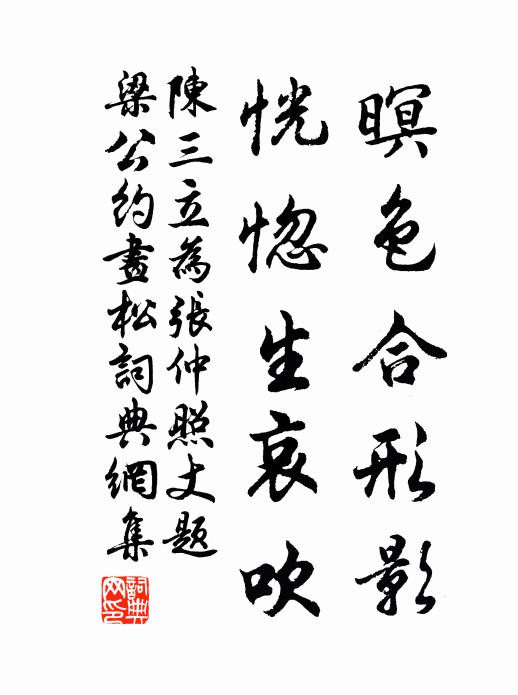 暝色合形影
恍惚生哀吹
陳三立為張仲照丈題
梁公約畫松詞典網集
詞典網印